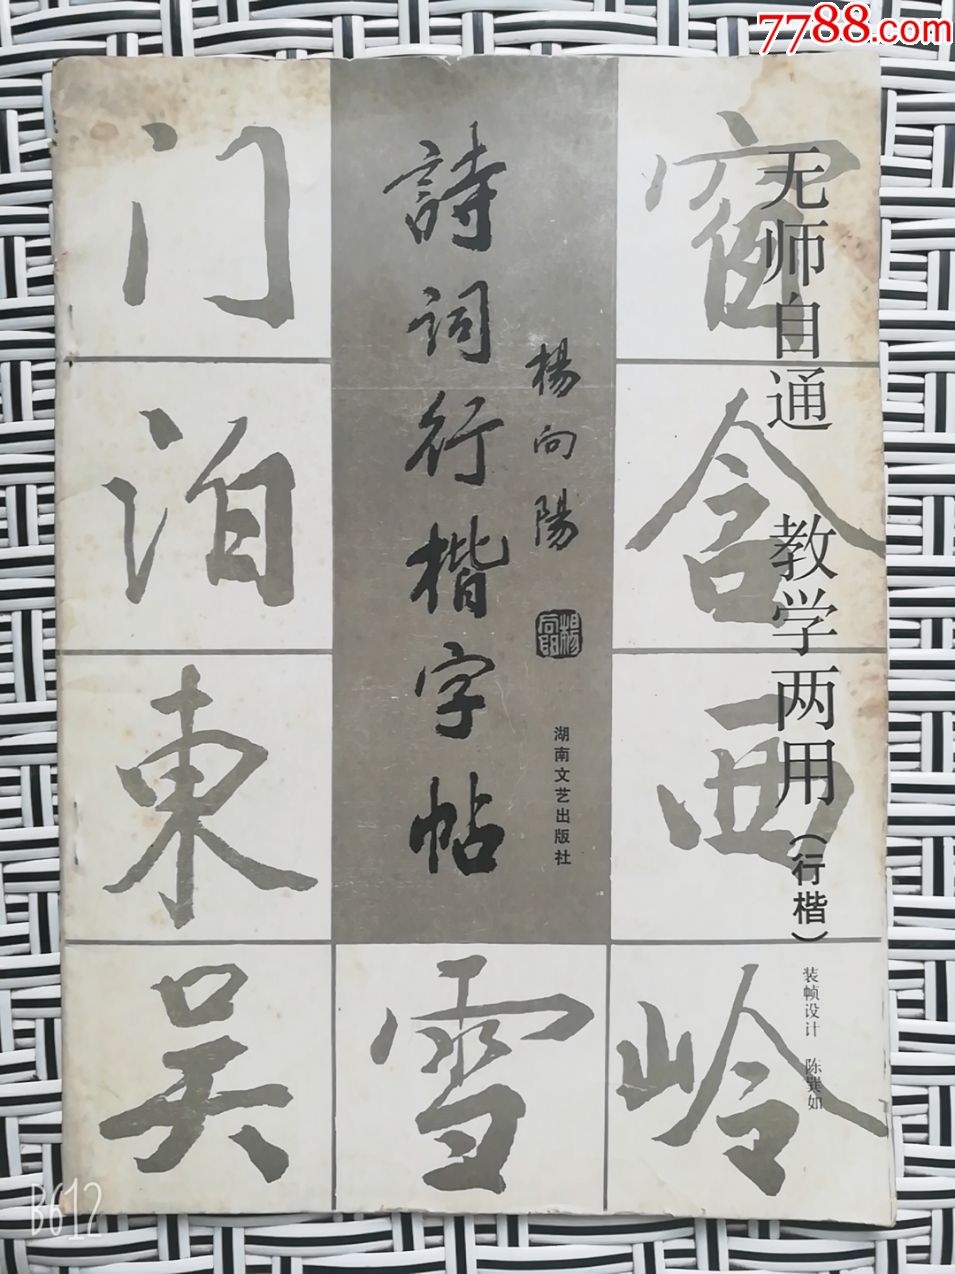 7788.com
无师自通 教学两用（行楷）
装帧设计 陈巽如
窗含西岭
雪
詩词行楷字帖
楊向陽
湖南文艺出版社
门泊東吴
B612